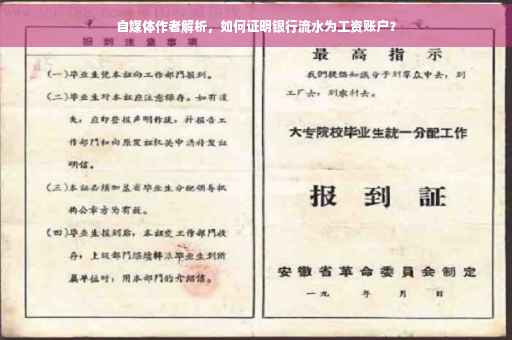 自媒体作者解析，如何证明银行流水为工资账户？
报到注意事项
(一)毕业生凭本证向工作部门报到。
(二)毕业生对本证应注意保存。如有遗
失，应即登报声明作废，并报告工
作部门和向原发证机关申请补发证
明信。
(三)本证必须加盖省毕业生分配领导机
构公章方为有效。
(四)毕业生报到后，本证交工作部门收
存；上级部门继续转派毕业生到所
属单位时，用本部门的介绍信。
最高指示
我们提倡知识分子到群众中去，到
工厂去，到农村去。
大专院校毕业生统一分配工作
报到证
安徽省革命委员会制定
一九 年 月 日